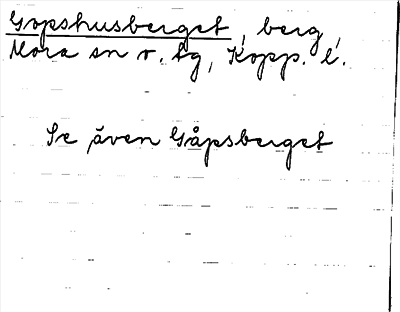 Gopshusberget, berg,
Mora sn v. tg, Kopp. l.
Se även Gåpsberget